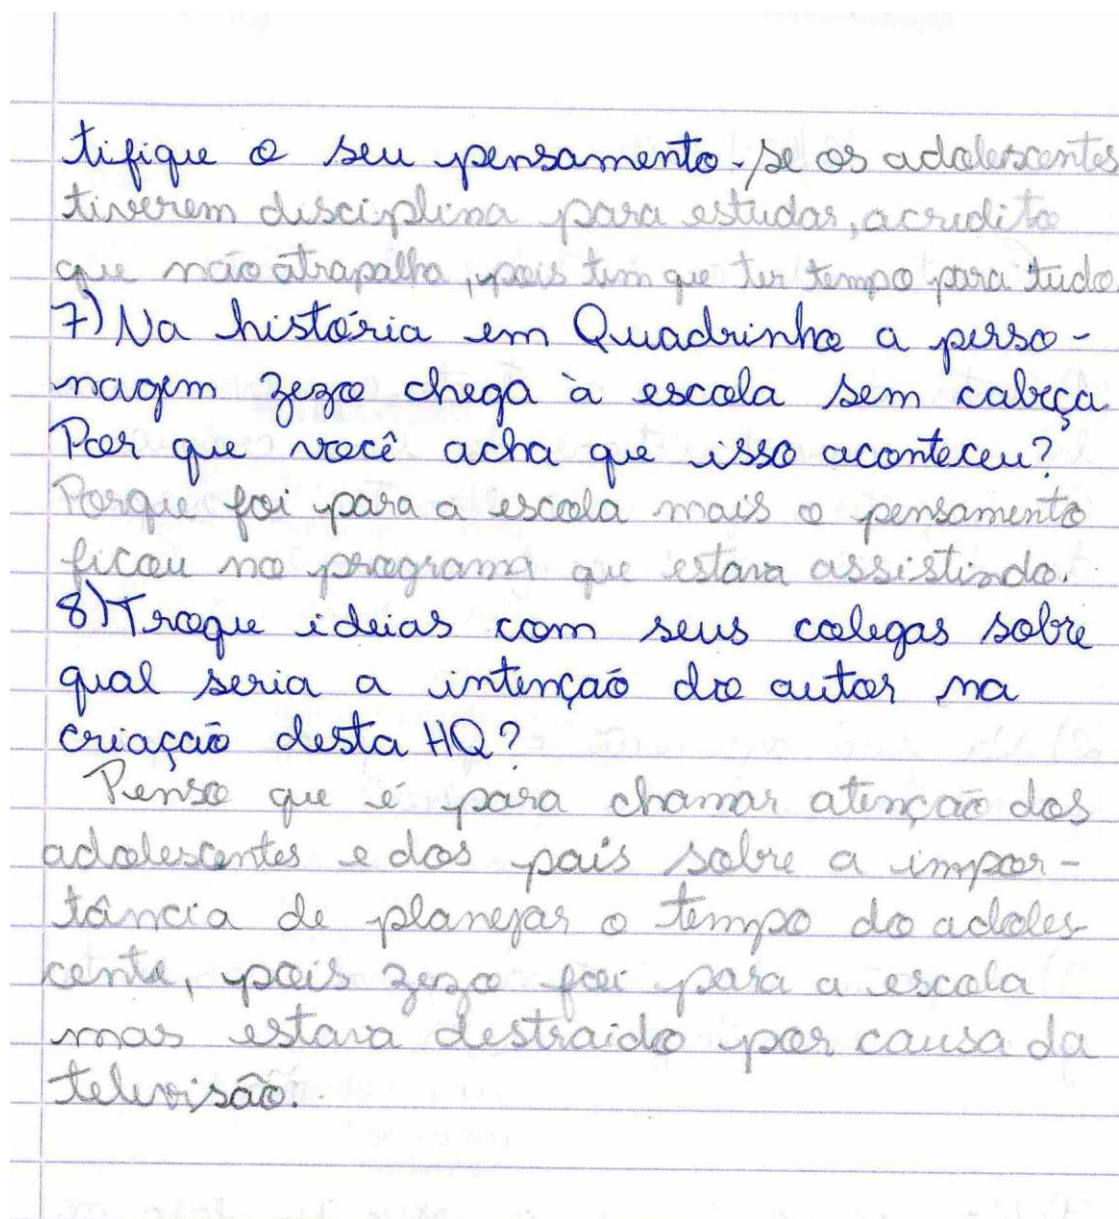 tifique o seu pensamento. Se os adolescentes
tiverem disciplina para estudar, acredito
que não atrapalha, pois tem que ter tempo para tudo.
7) Na história em Quadrinho a perso-
nagem Zezo chega à escola sem cabeça.
Por que você acha que isso aconteceu?
Porque foi para a escola mais o pensamento
ficou no programa que estava assistindo.
8) Troque ideias com seus colegas sobre
qual seria a intenção do autor na
criação desta HQ?
Penso que é para chamar atenção dos
adolescentes e dos pais sobre a impor-
tância de planejar o tempo do adoles-
cente, pois Zezo foi para a escola
mas estava destraido por causa da
televisão.